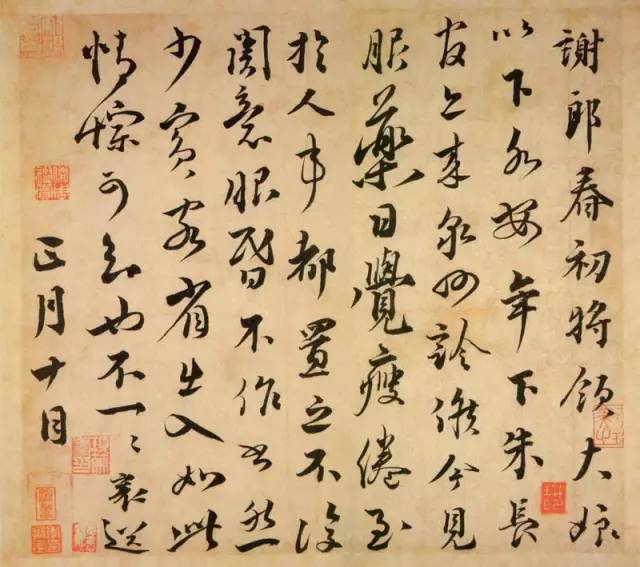 謝郎春初將領大娘
以下各安年下朱長
官亦來泉州診候今見
服藥日覺瘦倦至
於人事都置之不復
關意眼昏不作書然
少賓客省出入如此
情悰可知也不一々襄送
正月十日